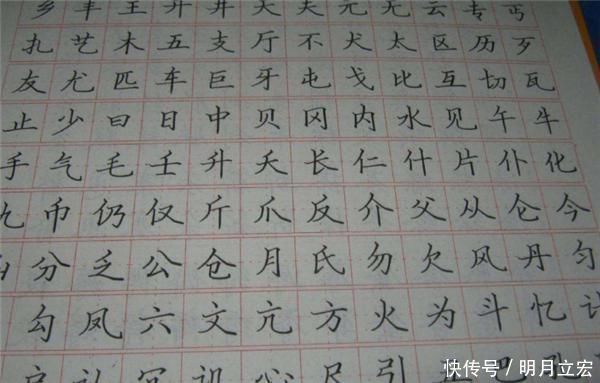 乡丰王开井天夫元无云专丐
扎艺木五支厅不犬太区历歹
友尤匹车巨牙屯戈比互切瓦
止少曰日中贝冈内水见午牛
手气毛壬升夭长仁什片仆化
币仍仅斤爪反介父从仑今
分乏公仓月氏勿欠风丹匀
勾凤六文亢方火为斗忆
户认冗讥心尺引丑巴
快传号／明月立宏